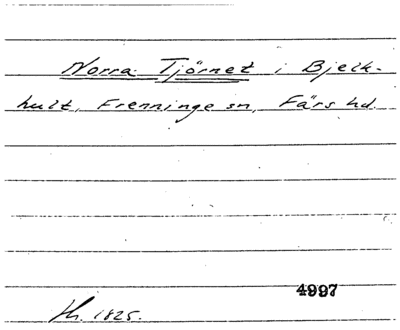 Norra Tjörnet i Bjelk-
hult, Frenninge sn, Färs hd.
4997
th. 1825.